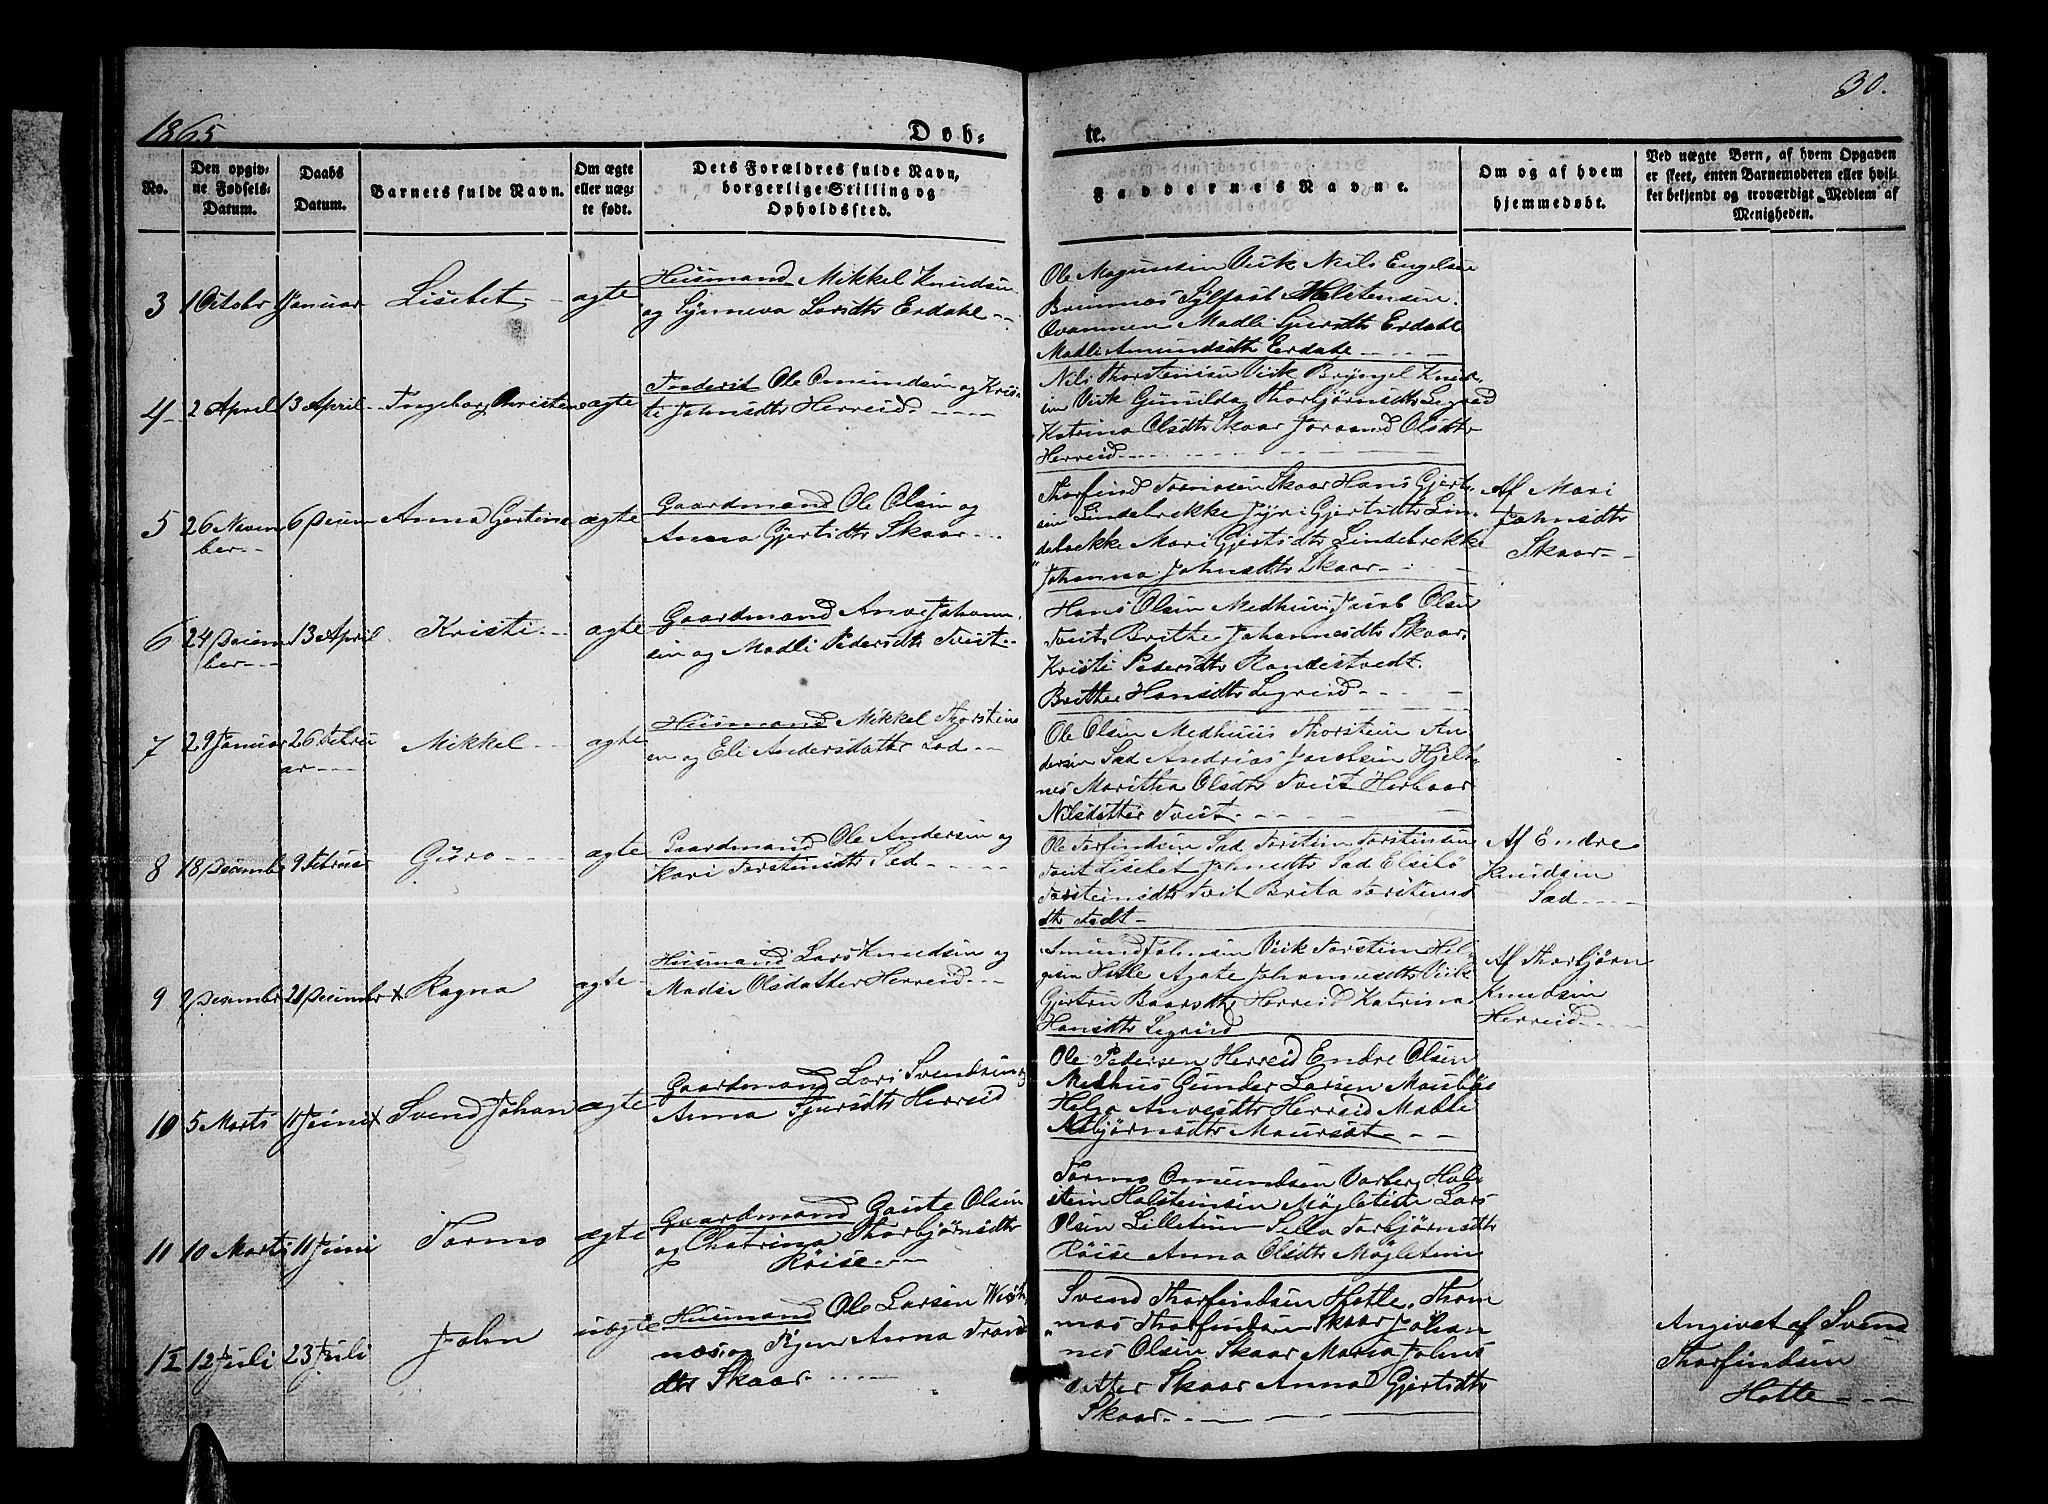 30.
1865 Døb- te.
No.
Den opgivne Fødsels-Datum.
Daabs Datum.
Barnets fulde Navn.
Om ægte eller uægte født.
Dets Forældres fulde Navn, borgerlige Stilling og Opholdssted.
Faddernes Navne.
Om og af hvem hjemmedøbt.
Ved uægte Børn, af hvem Opgaven er skeet, enten Barnemoderen eller hvilket bekjendt og troværdigt Medlem af Menigheden.
3 1 Octobr 1 Januar Lisebet agte
Huusmand Mikkel Knudsen
og Synneva Larsdtr Erdahl
Ole Magunsin Viik Nils Engelsen
Brimnæs Sylfæst Holstensen
Qvammen Madli Sjursdtr Erdahl
Madli Amundsdtr Erdahl
4 2 April 13 April Ingeborg Christens agte
Inderist Ole Omundsen og Kris-
ti Johnsdtr Herreid
Nils Thorsteinsen Viik Bryngel Knud-
sen Viik Gunilda Thorbjørnsdtr Legreid
Katrina Olsdtr Skaar Joraand Olsdtr
Herreid
5 26 Novem
ber 6 Decem Anna Gjertina ægte
Gaardmand Ole Olsen og
Anna Gjertsdtr Skaar
Thorfind Tormosen Skaar Hans Gjert-
sen Lindebrekke Gjertsdtr Lin-
debrekke Mari Gjertsdtr Lindebrekke
Johanna Johnsdtr Skaar
Af Mari
Johnsdtr
Skaar
6 24 Decem
ber 13 April Kristi agte
Gaardmand Anve Johann
sen og Madli Pedersdtr Tveit
Hans Olsen Medhuus Jacob Olsen
Tveit Brithe Johannesdtr Skaar
Kristi Pedersdtr Randestvedt
Brithe Hansdtr Legreid
7 29 Januar 26 Febru
ar Mikkel agte
Huusmand Mikkel Thorstens
en og Eli Andersdatter Sæd
Ole Olsen Medhuus Thorstein An
dersen Sæd Andrias Jacobsen Hjelt-
nes Maritha Olsdtr Tveit Herbaar
Nilsdatter Tveit
8 18 Decembr 9 Februar Guro ægte
Gaardmand Ole Andersen og
Kari Torstinsdtr Sæd
Ole Torfindsen Sæd Torstein Torstinsen
Tveit Lisebet Johnsdtr Sæd Elsebø
Torsteinsdtr Tveit Brita Torstens
dtr Fedt
Af Endre
Knudsen
Sæd
9 9 Decembr 26 Decembr x Ragna agte
Huusmand Lars Knudsen og
Madse Olsdatter Herreid
Amund Johnsen Viik Torstein Hel-
gesen Hotle Agate Johannesdtr Viik
Gjertru Baarsdtr Herreid Katrina
Hansdtr Legreid
Af Thorbjørn
Knudsen
Herreid
10 5 Marts 11 Juni x Svend Johan ægte
Gaardmand Lars Svendsen og
Anna Sjursdtr Herreid
Ole Pedersen Herreid Endre Olsen
Medhus Gunder Larsen Maursæt
Helga Anvesdtr Herreid Madle
Asbjørnsdtr Maursæt
11 10 Marts 11 Juni Tormo ægte
Gaardmand Gaute Olsen
og Chatrina Thorbjørnsdtr
Røise
Tormo Omundsen Varberg Hol-
stein Holsteinsen Mögletun Lars
Olsen Lilletun Sella Torbjørnsdtr
Röise Anna Olsdtr Mögletun
12 12 Juli 23 Juli John uægte
Huusmand Ole Larsen Wiik-
næs og Pigen Anna Trond
dtr Skaar
Svend Thorfindsen Hotle Thom
mas Thorfindsen Skaar Johan
nes Olsen Skaar Maria Johns
datter Skaar Anna Gjertsdtr
Skaar
Angivet af Svend
Thorfindsen
Hotle